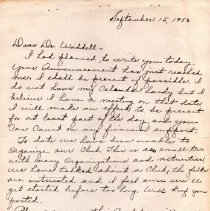 September 15, 1953
Dear Dr. Weddell -
I had planned to write you today.
Your Announcement has just reached
me. I shall be present if possible. I
do not have my Calendar handy but I
believe I have a meeting on that date
I will make an effort to be present
for at least part of the day, and you
can count on my financial support.
To date we have been unable to
Organize our Club. This is a
with many Organizations and activities
We have talked about a Club, the
are interested and I feel sure we'll
get started before too long. Will keep you
posted.